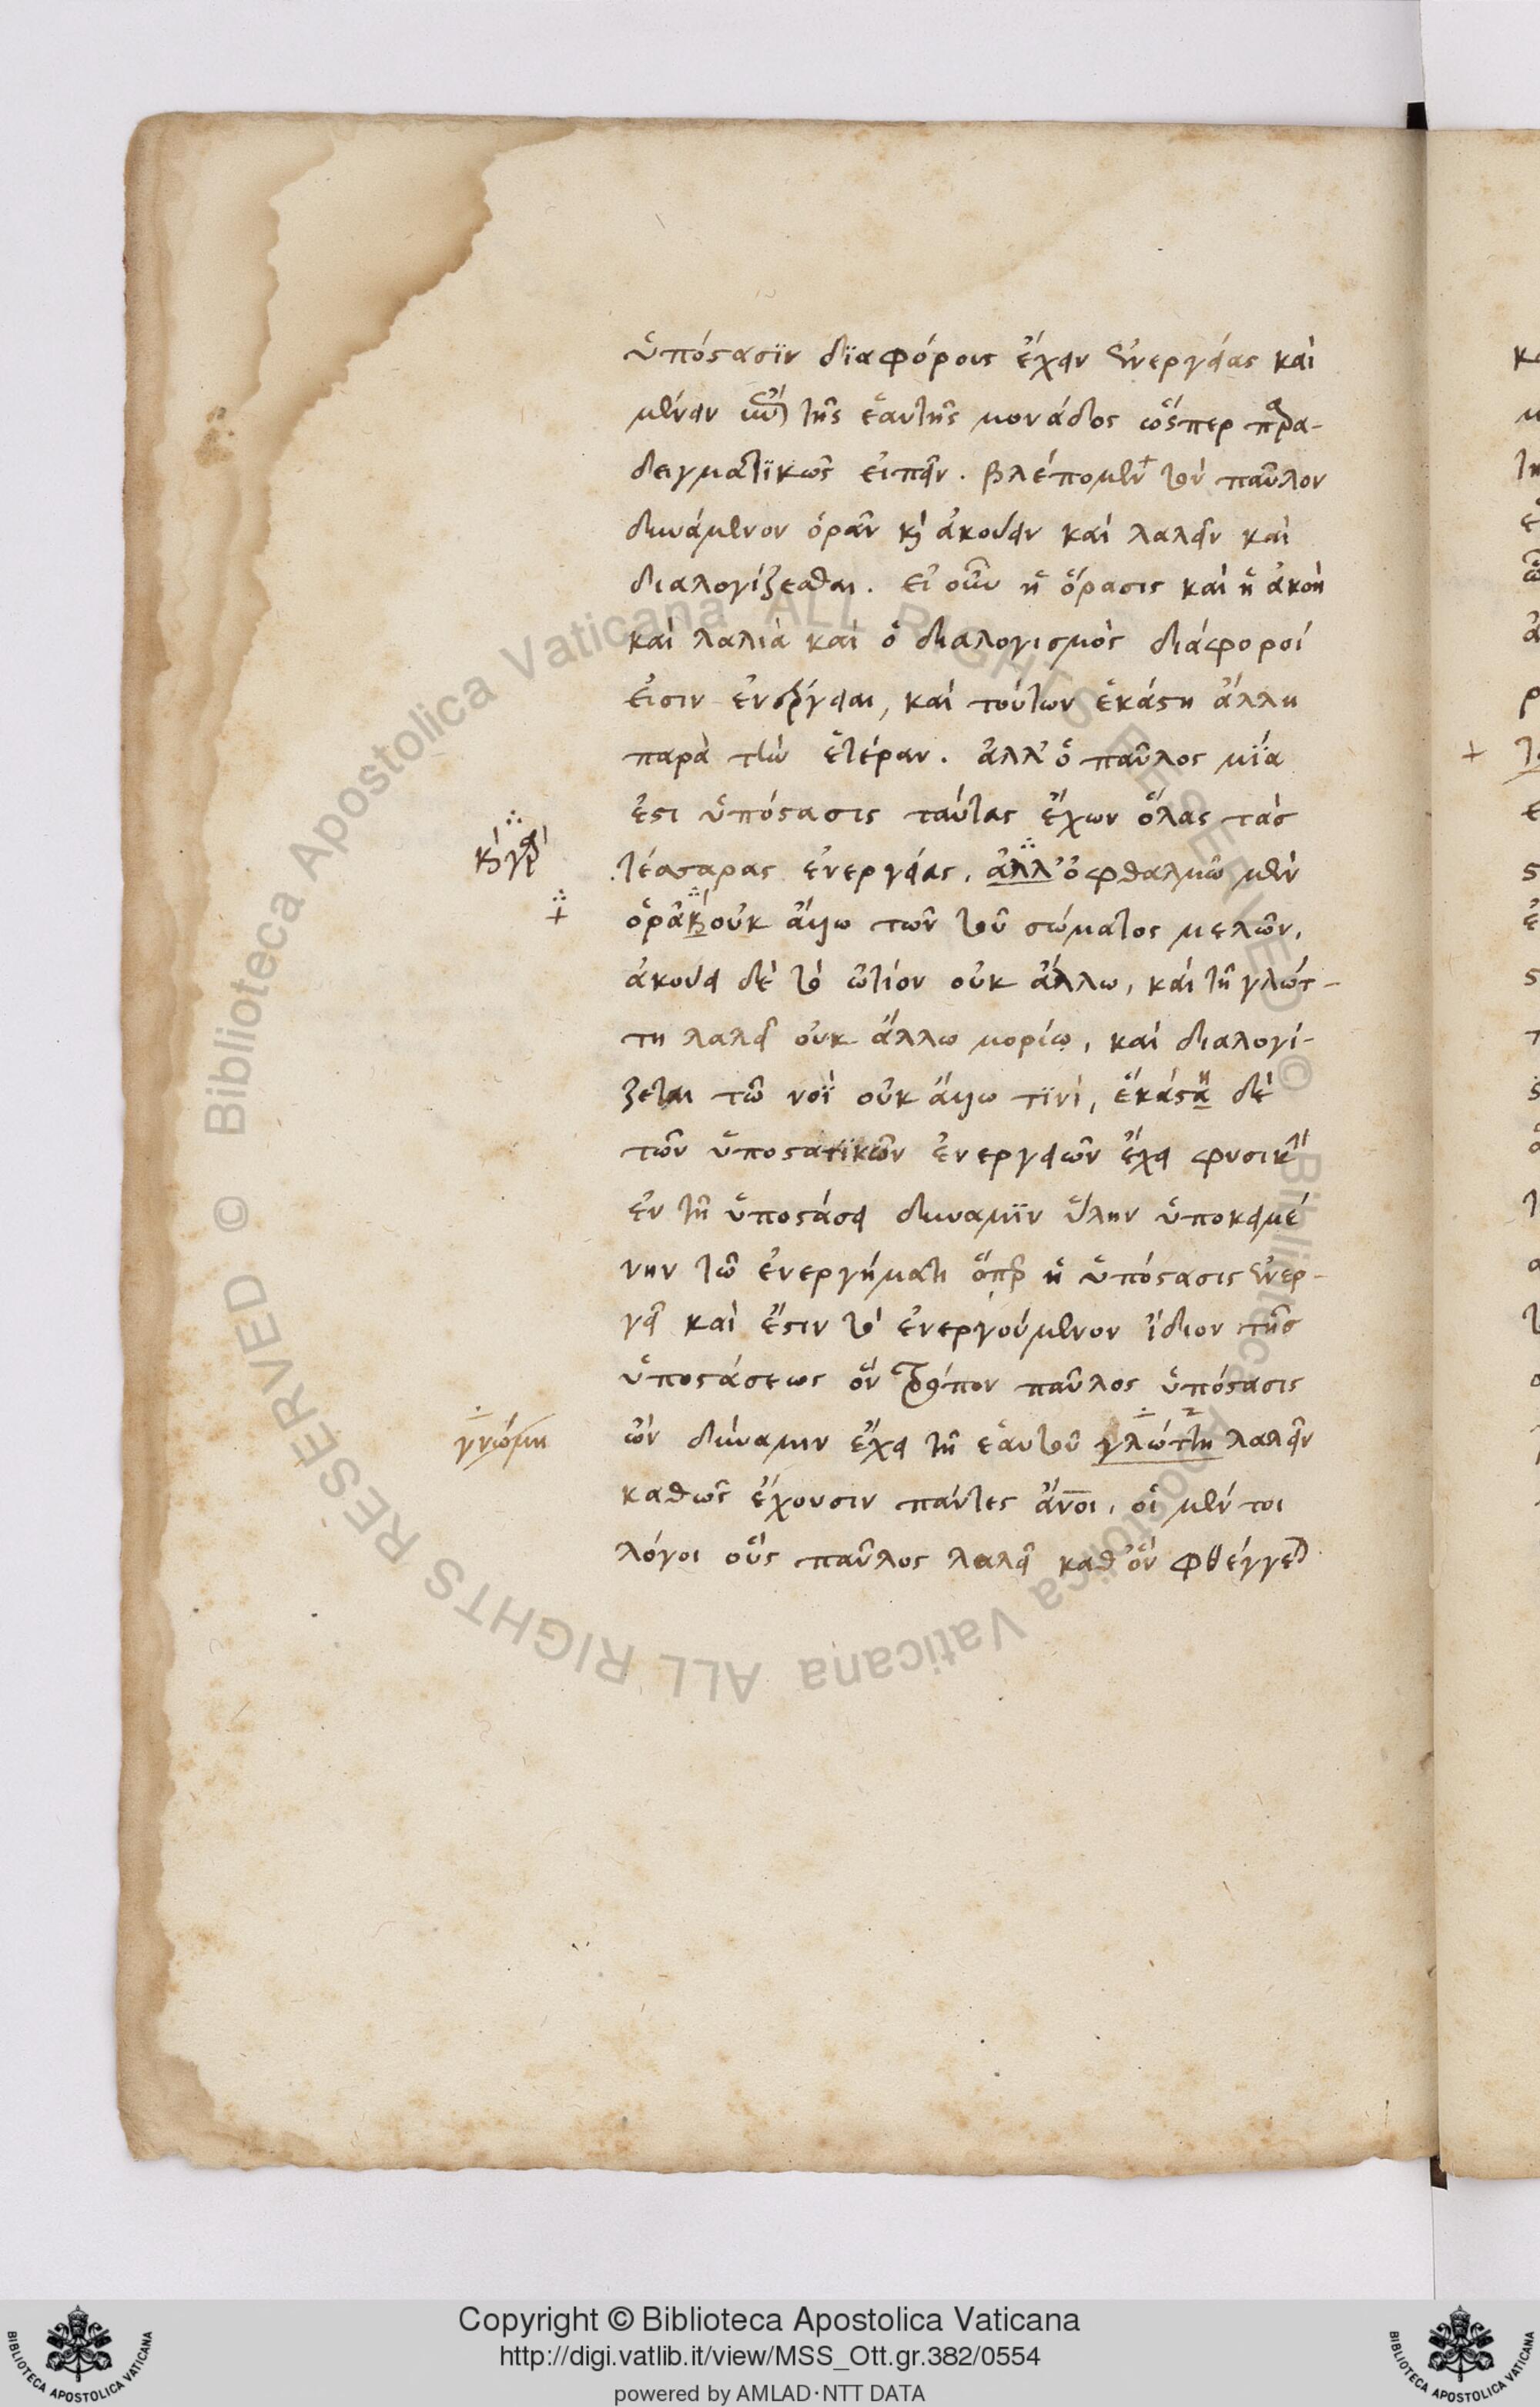 ὑπόστασϊν δϊαφόρους ἔχειν ἐνεργείας καὶ
μένειν ἐπὶ τῆς ἑαυτῆς μονάδος ὥσπερ παρα-
δειγματϊκῶς εἰπεῖν. βλέπομεν+ τὸν παῦλον
δυνάμενον ὁρᾶν κὶ ἀκούειν καὶ λαλεῖν καὶ
διαλογίζεσθαι. εἰ οὖν ἡ ὅρασις καὶ ἡ ἀκοὴ
καὶ λαλιὰ καὶ ὁ διαλογισμὸς διάφοροί
εἰσιν ἐνέργειαι, καὶ τούτων ἑκάστη ἄλλη
παρὰ τὴν ἑτέραν. ἀλλ' ὁ παῦλος μϊά
ἐστι ὑπόστασις ταύτας ἔχων ὅλας τὰσ
κὶ γὰρ
τέσσαρας ἐνεργείας, ἀλλ' ὀφθαλμῶ μὲν
+
ὁρᾶ κὶ οὐκ ἄλλω τῶν τοῦ σώματος μελῶν,
ἀκούει δὲ τὸ ὠτίον οὐκ ἄλλω, καὶ τῆ γλώτ-
τη λαλεῖ οὐκ ἄλλω μορίω, καὶ διαλογί-
ζεται τῶ νοῒ οὐκ ἄλλω τϊνὶ, ἑκάστη δὲ
τῶν ὑποστατϊκῶν ἐνεργειῶν ἔχει φυσικὴν
ἐν τῆ ὑποστάσει δυναμϊν ὕλην ὑποκειμέ
νην τῶ ἐνεργήματι ὅπερ ἡ ὑπόστασις ἐνερ-
γεῖ καὶ ἔστιν τὸ ἐνεργούμενον ἴδιον τῆσ
ὑποστάσεως ὃν τρόπον παῦλος ὑπόστασις
γνώμη
ὢν δύναμιν ἔχει τῆ ἑαυτοῦ γλώττη λαλεῖν
καθὼς ἔχουσιν πάντες ἄνοι, οἱ μέν τοι
λόγοι οὓς παῦλος λαλεῖ καθ' ὃν φθέγγεται
Copyright © Biblioteca Apostolica Vaticana
http://digi.vatlib.it/view/MSS_Ott.gr.382/0554
powered by AMLAD·NTT DATA